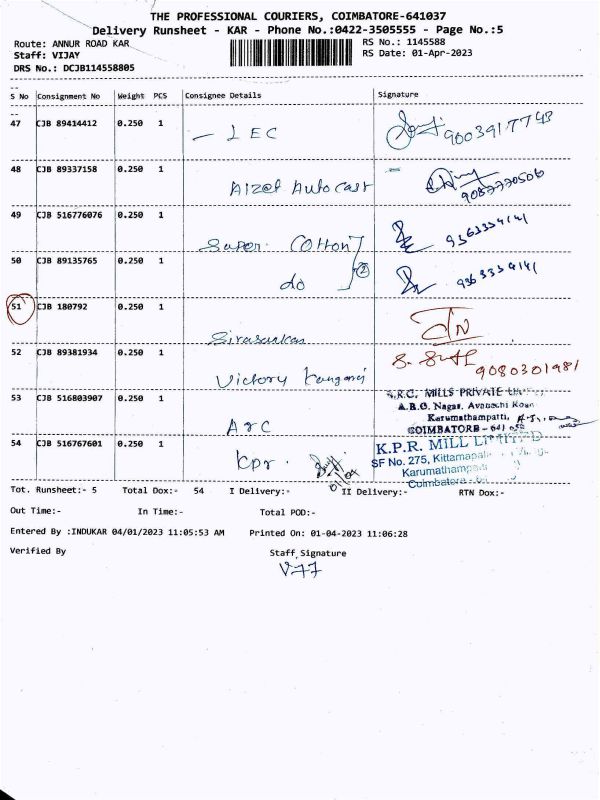 THE PROFESSIONAL COURIERS, COIMBATORE-641037
Delivery Runsheet - KAR - Phone No.:0422-3505555 - Page No.:5
Route: ANNUR ROAD KAR
RS No.: 1145588
Staff: VIJAY
RS Date: 01-Apr-2023
DRS No.: DCJB114558805
S No Consignment No Weight PCS Consignee Details Signature
47 CJB 89414412 0.250 1
- LEC 9003917743
48 CJB 89337158 0.250 1
Aizel Autocast 9087770506
49 CJB 516776076 0.250 1
Super Cotton 9363334141
50 CJB 89135765 0.250 1
do 2 9363334141
51 CJB 180792 0.250 1
Sivasankar
52 CJB 89381934 0.250 1
Victory 9080301981
53 CJB 516803907 0.250 1
ARC
MILLS PRIVATE
A.R.C. Nagar, Avanashi Road
Karumathampatti,
COIMBATORE - 641
54 CJB 516767601 0.250 1
Kpr. 01/04
K.P.R. MILL LIMITED
SF No. 275,
Karumathampatti
Coimbatore -
Tot. Runsheet:- 5 Total Dox:- 54 I Delivery:- II Delivery:- RTN Dox:-
Out Time:- In Time:- Total POD:-
Entered By :INDUKAR 04/01/2023 11:05:53 AM Printed On: 01-04-2023 11:06:28
Verified By Staff Signature
V77